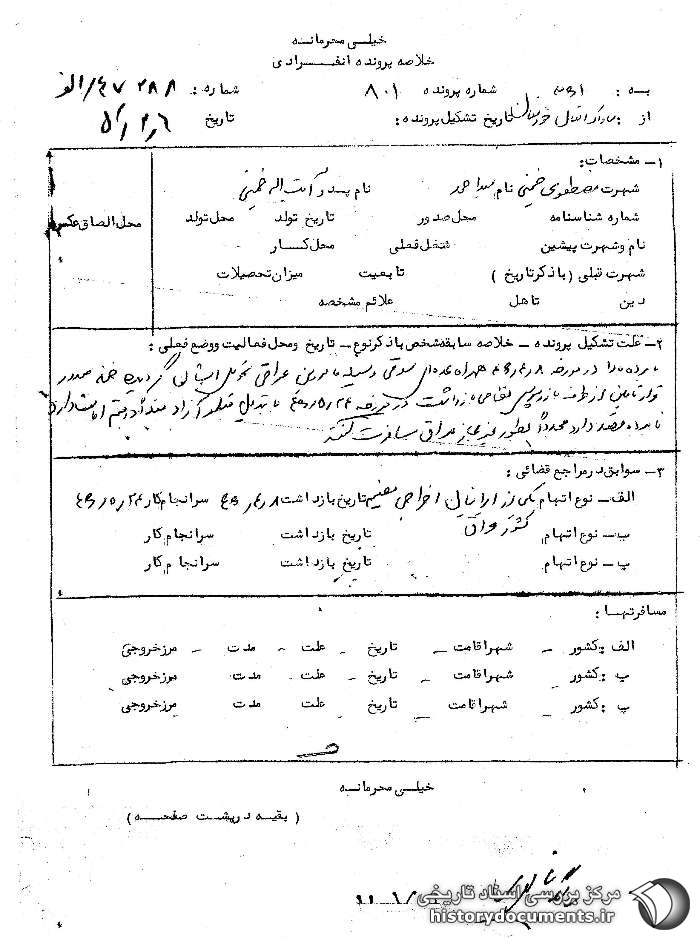 خیلی محرمانه
خلاصه پرونده انفرادی
به : شماره پرونده ۸۰۱ شماره : ۴۷۲۸۸/الف
از : تاریخ تشکیل پرونده : تاریخ
۱- مشخصات :
شهرت مصطفوی خمینی نام سید احمد نام پدر آیت اله خمینی
شماره شناسنامه محل صدور تاریخ تولد محل تولد
محل الصاق عکس
نام وشهرت پیشین شغل فعلی محل کار
شهرت قبلی ( با ذکر تاریخ ) تابعیت میزان تحصیلات
دین تاهل علائم مشخصه
۲- علت تشکیل پرونده - خلاصه سابقه شخص با ذکر نوع - تاریخ ومحل فعالیت ووضع فعلی :
نامبرده بالا در مورخه همراه عده‌ای بوسیله مامورین عراقی تحویل گردیده ضمن صدور
قرار تامین از طرف بازپرسی بازداشت در مورخه ۴۶/۵/۲۴ با تبدیل قرار آزاد
نامبرده قصد دارد مجدداً بطور غیرمجاز بعراق مسافرت کند
۳- سوابق در مراجع قضائی :
الف - نوع اتهام یکی از ایرانیان اخراجی مقیم تاریخ بازداشت سرانجام کار ۴۶/۵/۲۴
کشور عراق
ب - نوع اتهام تاریخ بازداشت سرانجام کار
پ - نوع اتهام تاریخ بازداشت سرانجام کار
مسافرتها :
الف : کشور - شهر اقامت - تاریخ - علت - مدت - مرز خروجی
ب : کشور - شهر اقامت - تاریخ - علت مدت مرز خروجی
پ : کشور - شهر اقامت - تاریخ علت مدت مرز خروجی
خیلی محرمانه
( بقیه در پشت صفحه )
مرکز بررسی اسناد تاریخی
historydocuments.ir